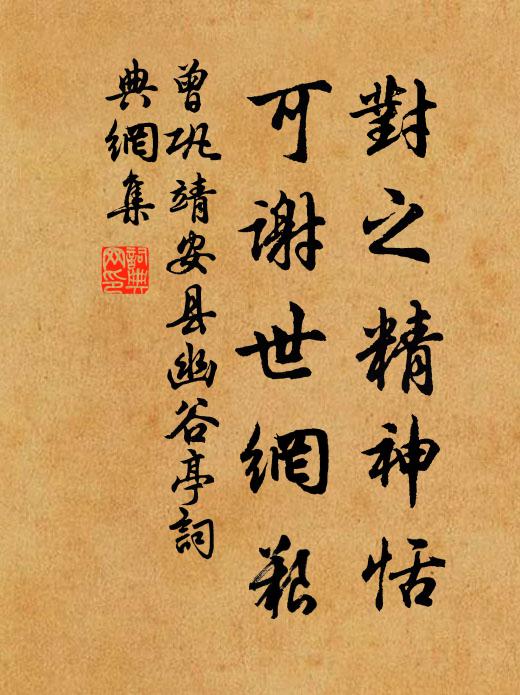 對之精神恬
可謝世網艱
曾巩靖安县幽谷亭詞
典網集
詞典網印